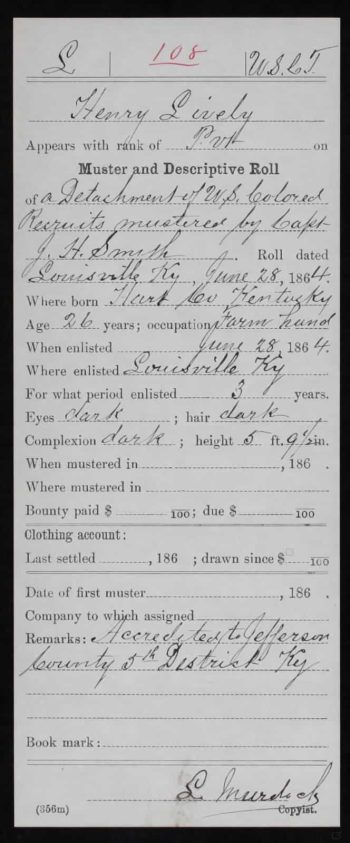 L 108 U.S.C.T.
Henry Lively
Appears with rank of Pvt on
Muster and Descriptive Roll
of a Detachment of U.S. Colored
Recruits mustered by Capt
J. H. Smith . Roll dated
Louisville Ky, June 28, 1864.
Where born Hart Co Kentucky
Age 26 years; occupation Farm hand
When enlisted June 28, 1864.
Where enlisted Louisville Ky
For what period enlisted 3 years.
Eyes dark ; hair dark
Complexion dark ; height 5 ft. 9 1/2 in.
When mustered in , 186 .
Where mustered in
Bounty paid $ 100; due $ 100
Clothing account:
Last settled , 186 ; drawn since $ 100
Date of first muster , 186 .
Company to which assigned
Remarks: Accredited to Jefferson
County 5th District Ky
Book mark:
L. Murdock
(356m) Copyist.